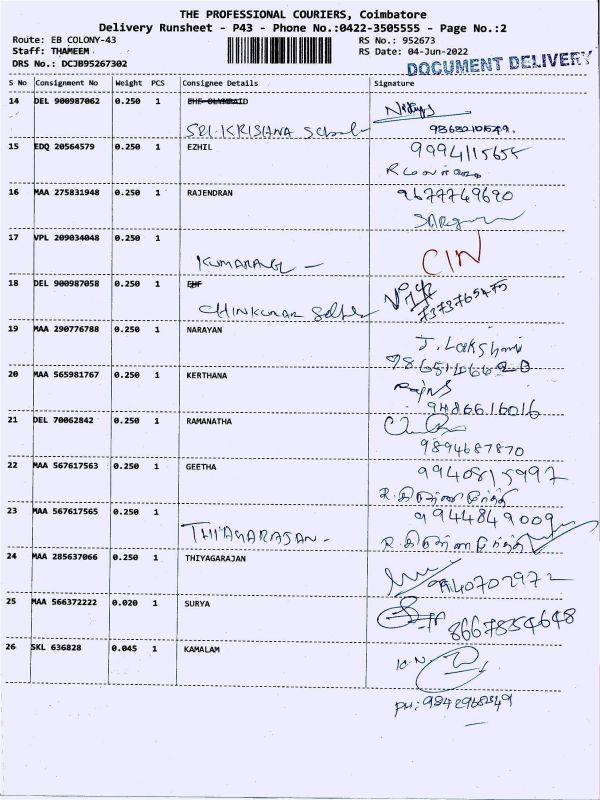 THE PROFESSIONAL COURIERS, Coimbatore
Delivery Runsheet - P43 - Phone No.:0422-3505555 - Page No.:2
Route: EB COLONY-43 RS No.: 952673
Staff: THAMEEM RS Date: 04-Jun-2022
DRS No.: DCJB95267302 DOCUMENT DELIVERY
S No Consignment No Weight PCS Consignee Details Signature
14 DEL 900987062 0.250 1 EHF OLYMPAID
SRI.KRISHNA
15 EDQ 20564579 0.250 1 EZHIL
16 MAA 275831948 0.250 1 RAJENDRAN 9677749690
17 VPL 209034048 0.250 1
CIN
18 DEL 900987058 0.250 1 EHF
7373765475
19 MAA 290776788 0.250 1 NARAYAN
J. Lakshmi
20 MAA 565981767 0.250 1 KERTHANA
9486616016
21 DEL 70062842 0.250 1 RAMANATHA
9894687870
22 MAA 567617563 0.250 1 GEETHA
9940815997
23 MAA 567617565 0.250 1 9944849009
THIYAGARAJAN -
24 MAA 285637066 0.250 1 THIYAGARAJAN
9140702972
25 MAA 566372222 0.020 1 SURYA
8667854648
26 SKL 636828 0.045 1 KAMALAM
K.N.
PH: